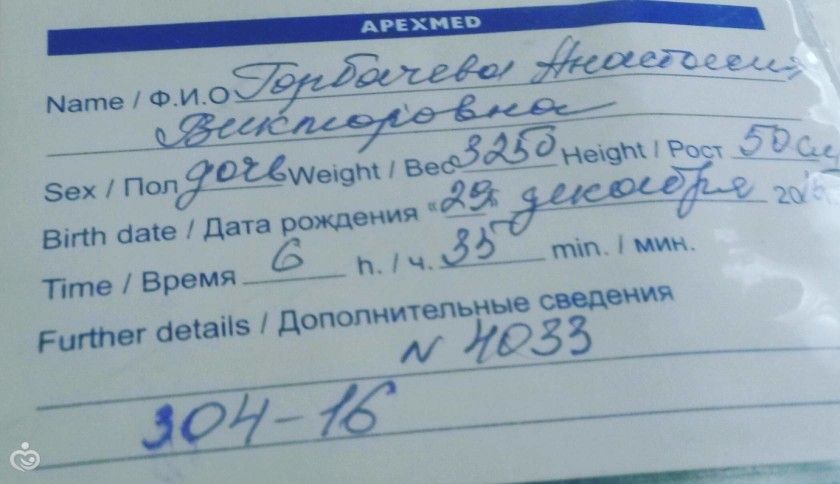 APEXMED
Name / Ф.И.О Горбачева Анастасия
Викторовна
Sex / Пол дочь Weight / Вес 3250 Height / Рост 50 см
Birth date / Дата рождения «29» декабря 2015
Time / Время 6 h. / ч. 35 min. / мин.
Further details / Дополнительные сведения
N 4033
304-16